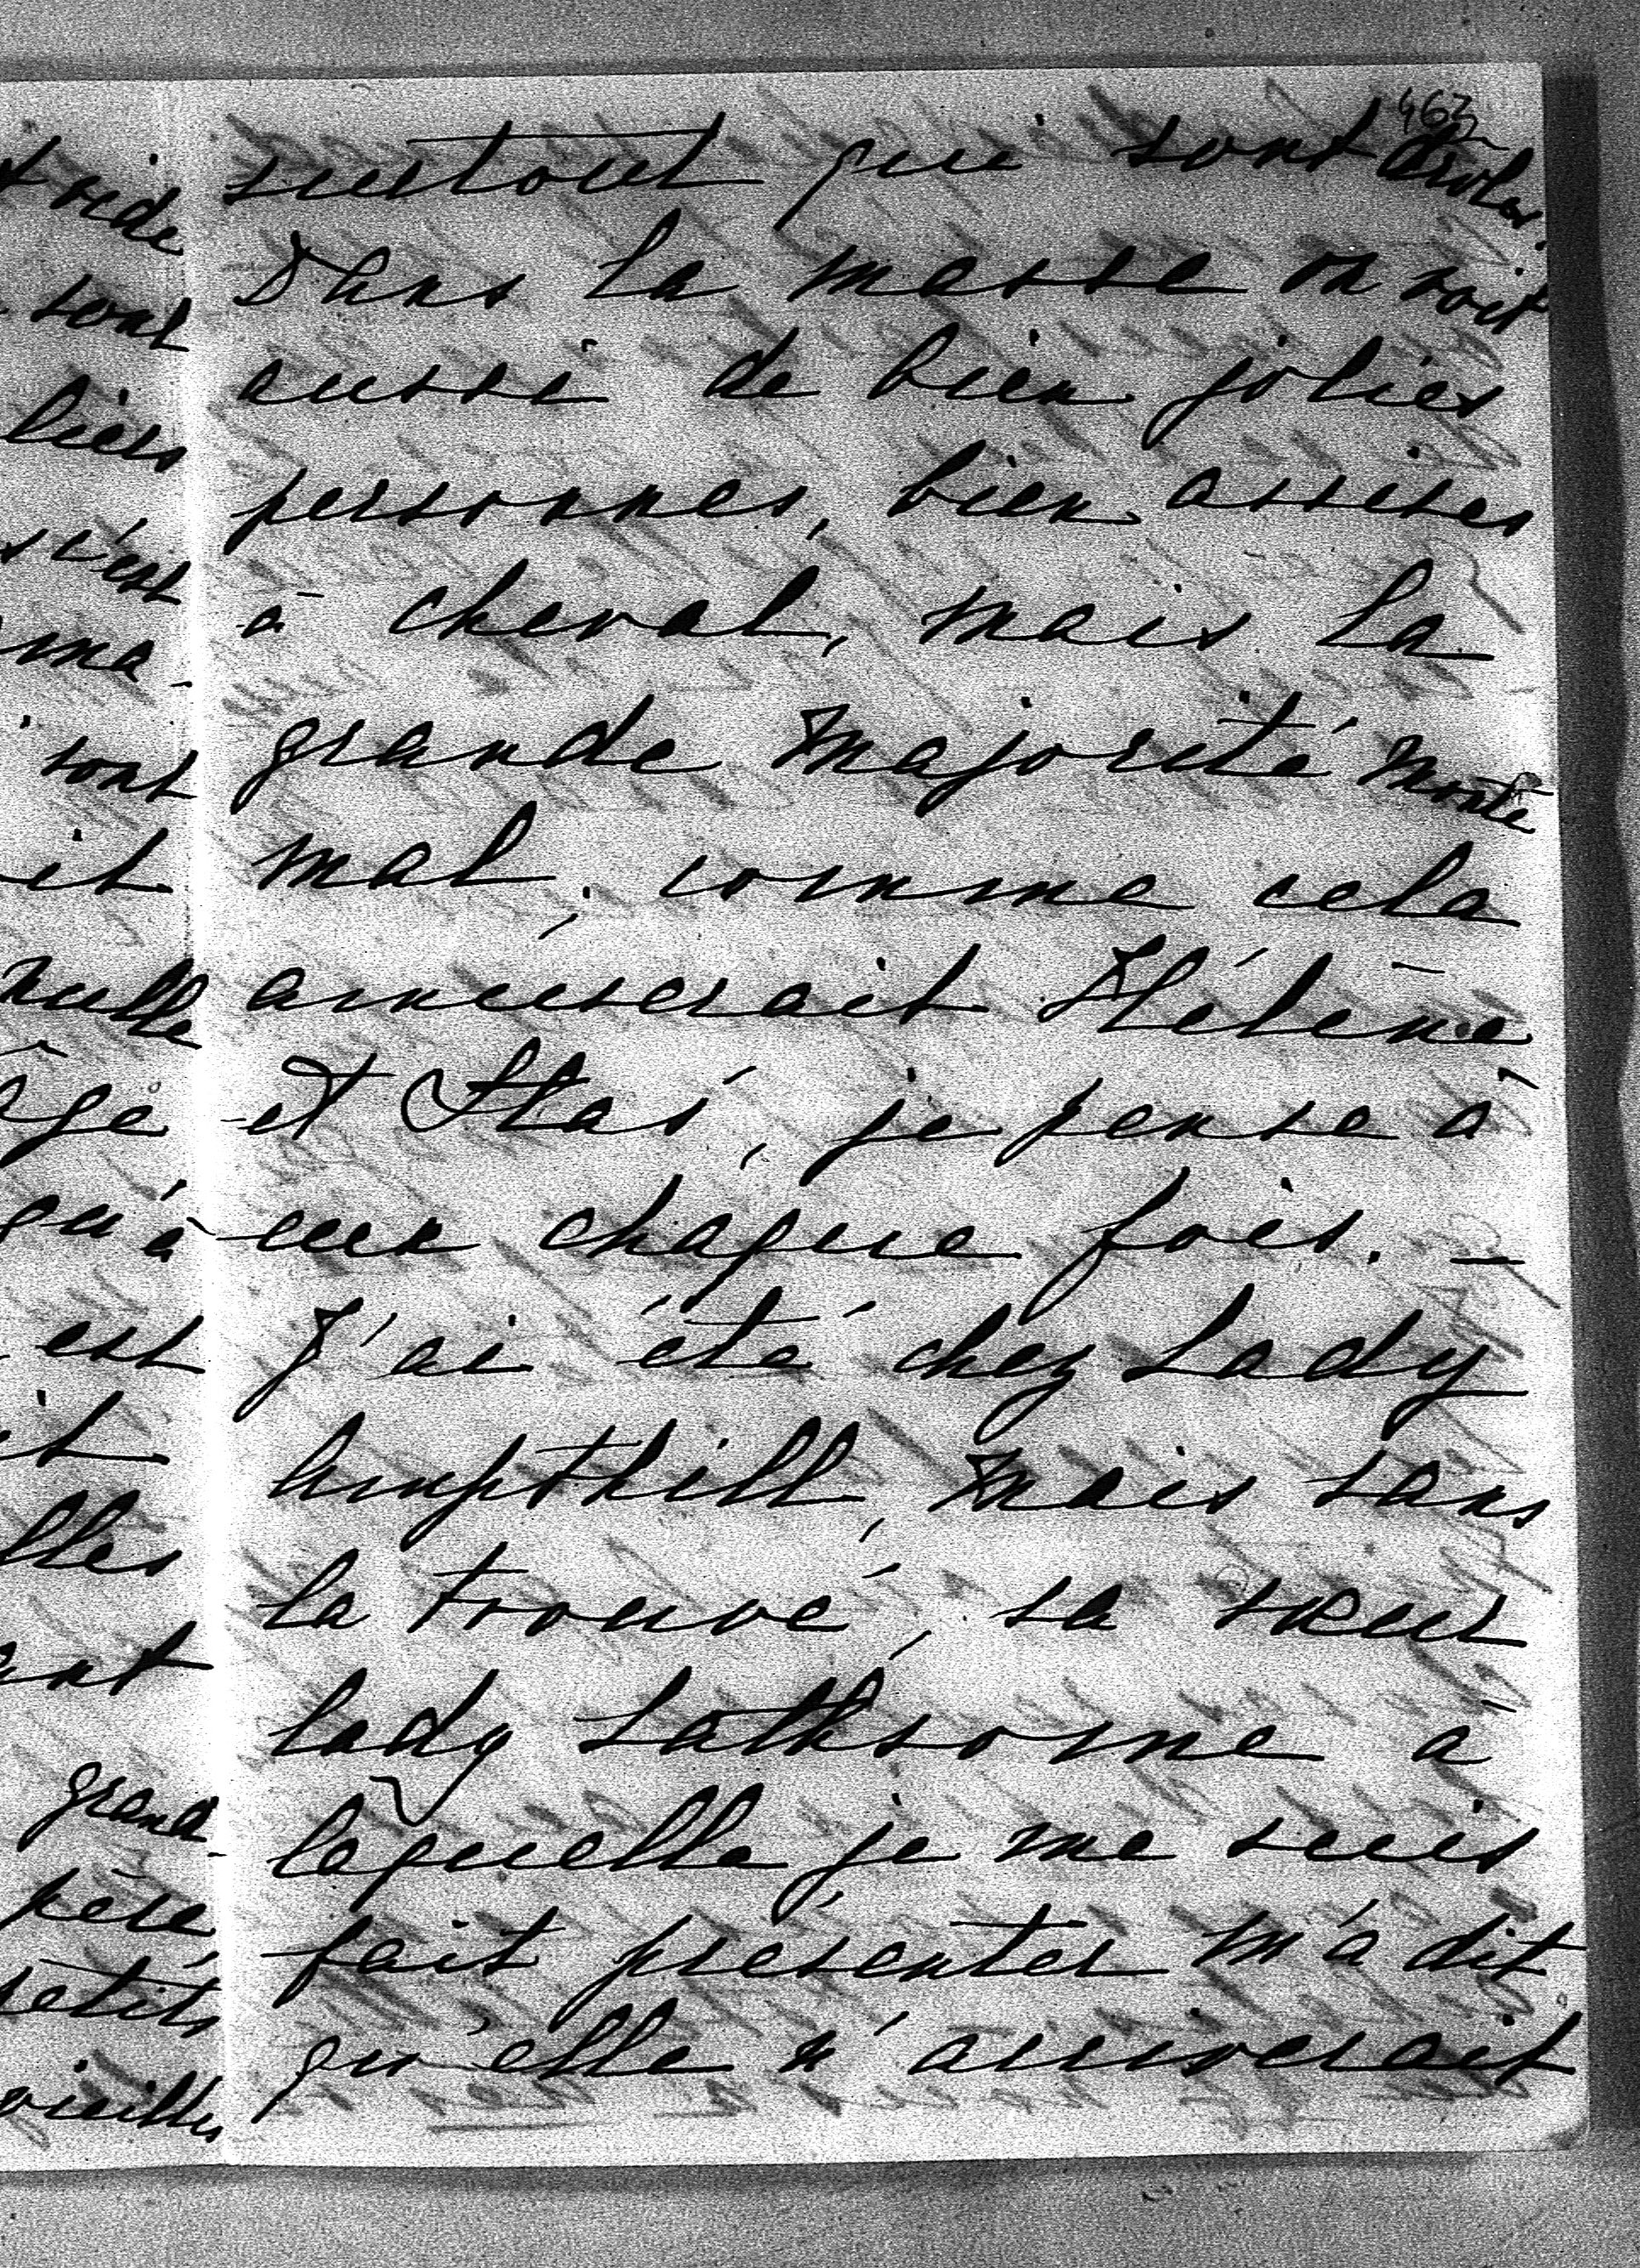 463
surtout qui sont droles.
Dans la masse on voit
aussi de bien jolies
personnes, bien assises
à cheval, mais la
grande majorité monte
mal, comme cela
amuserait Hélène
et Staś, je pense à
eux chaque fois. —
J'ai été chez Lady
Ampthill, mais sans
la trouvé, sa sœur
lady Lathsome à
laquelle je me suis
fait présenter m'a dit
qu'elle n'arriverait
sont
liers
c'est
ma-
sont
it
nulle
age
qu'à
est
it
lles
ant
grand-
père
petits
vieilles